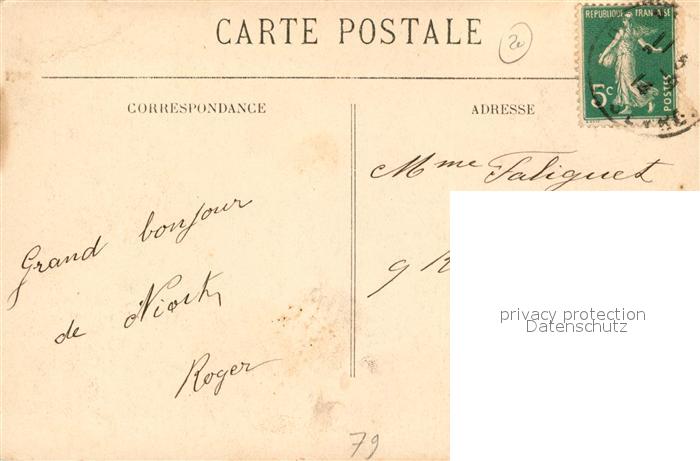 CARTE POSTALE
20
REPUBLIQUE FRANÇAISE
5c
POSTES
CORRESPONDANCE
ADRESSE
Mme Faliguet
9 R
Grand bonjour
de Niort
Roger
privacy protection
Datenschutz
79